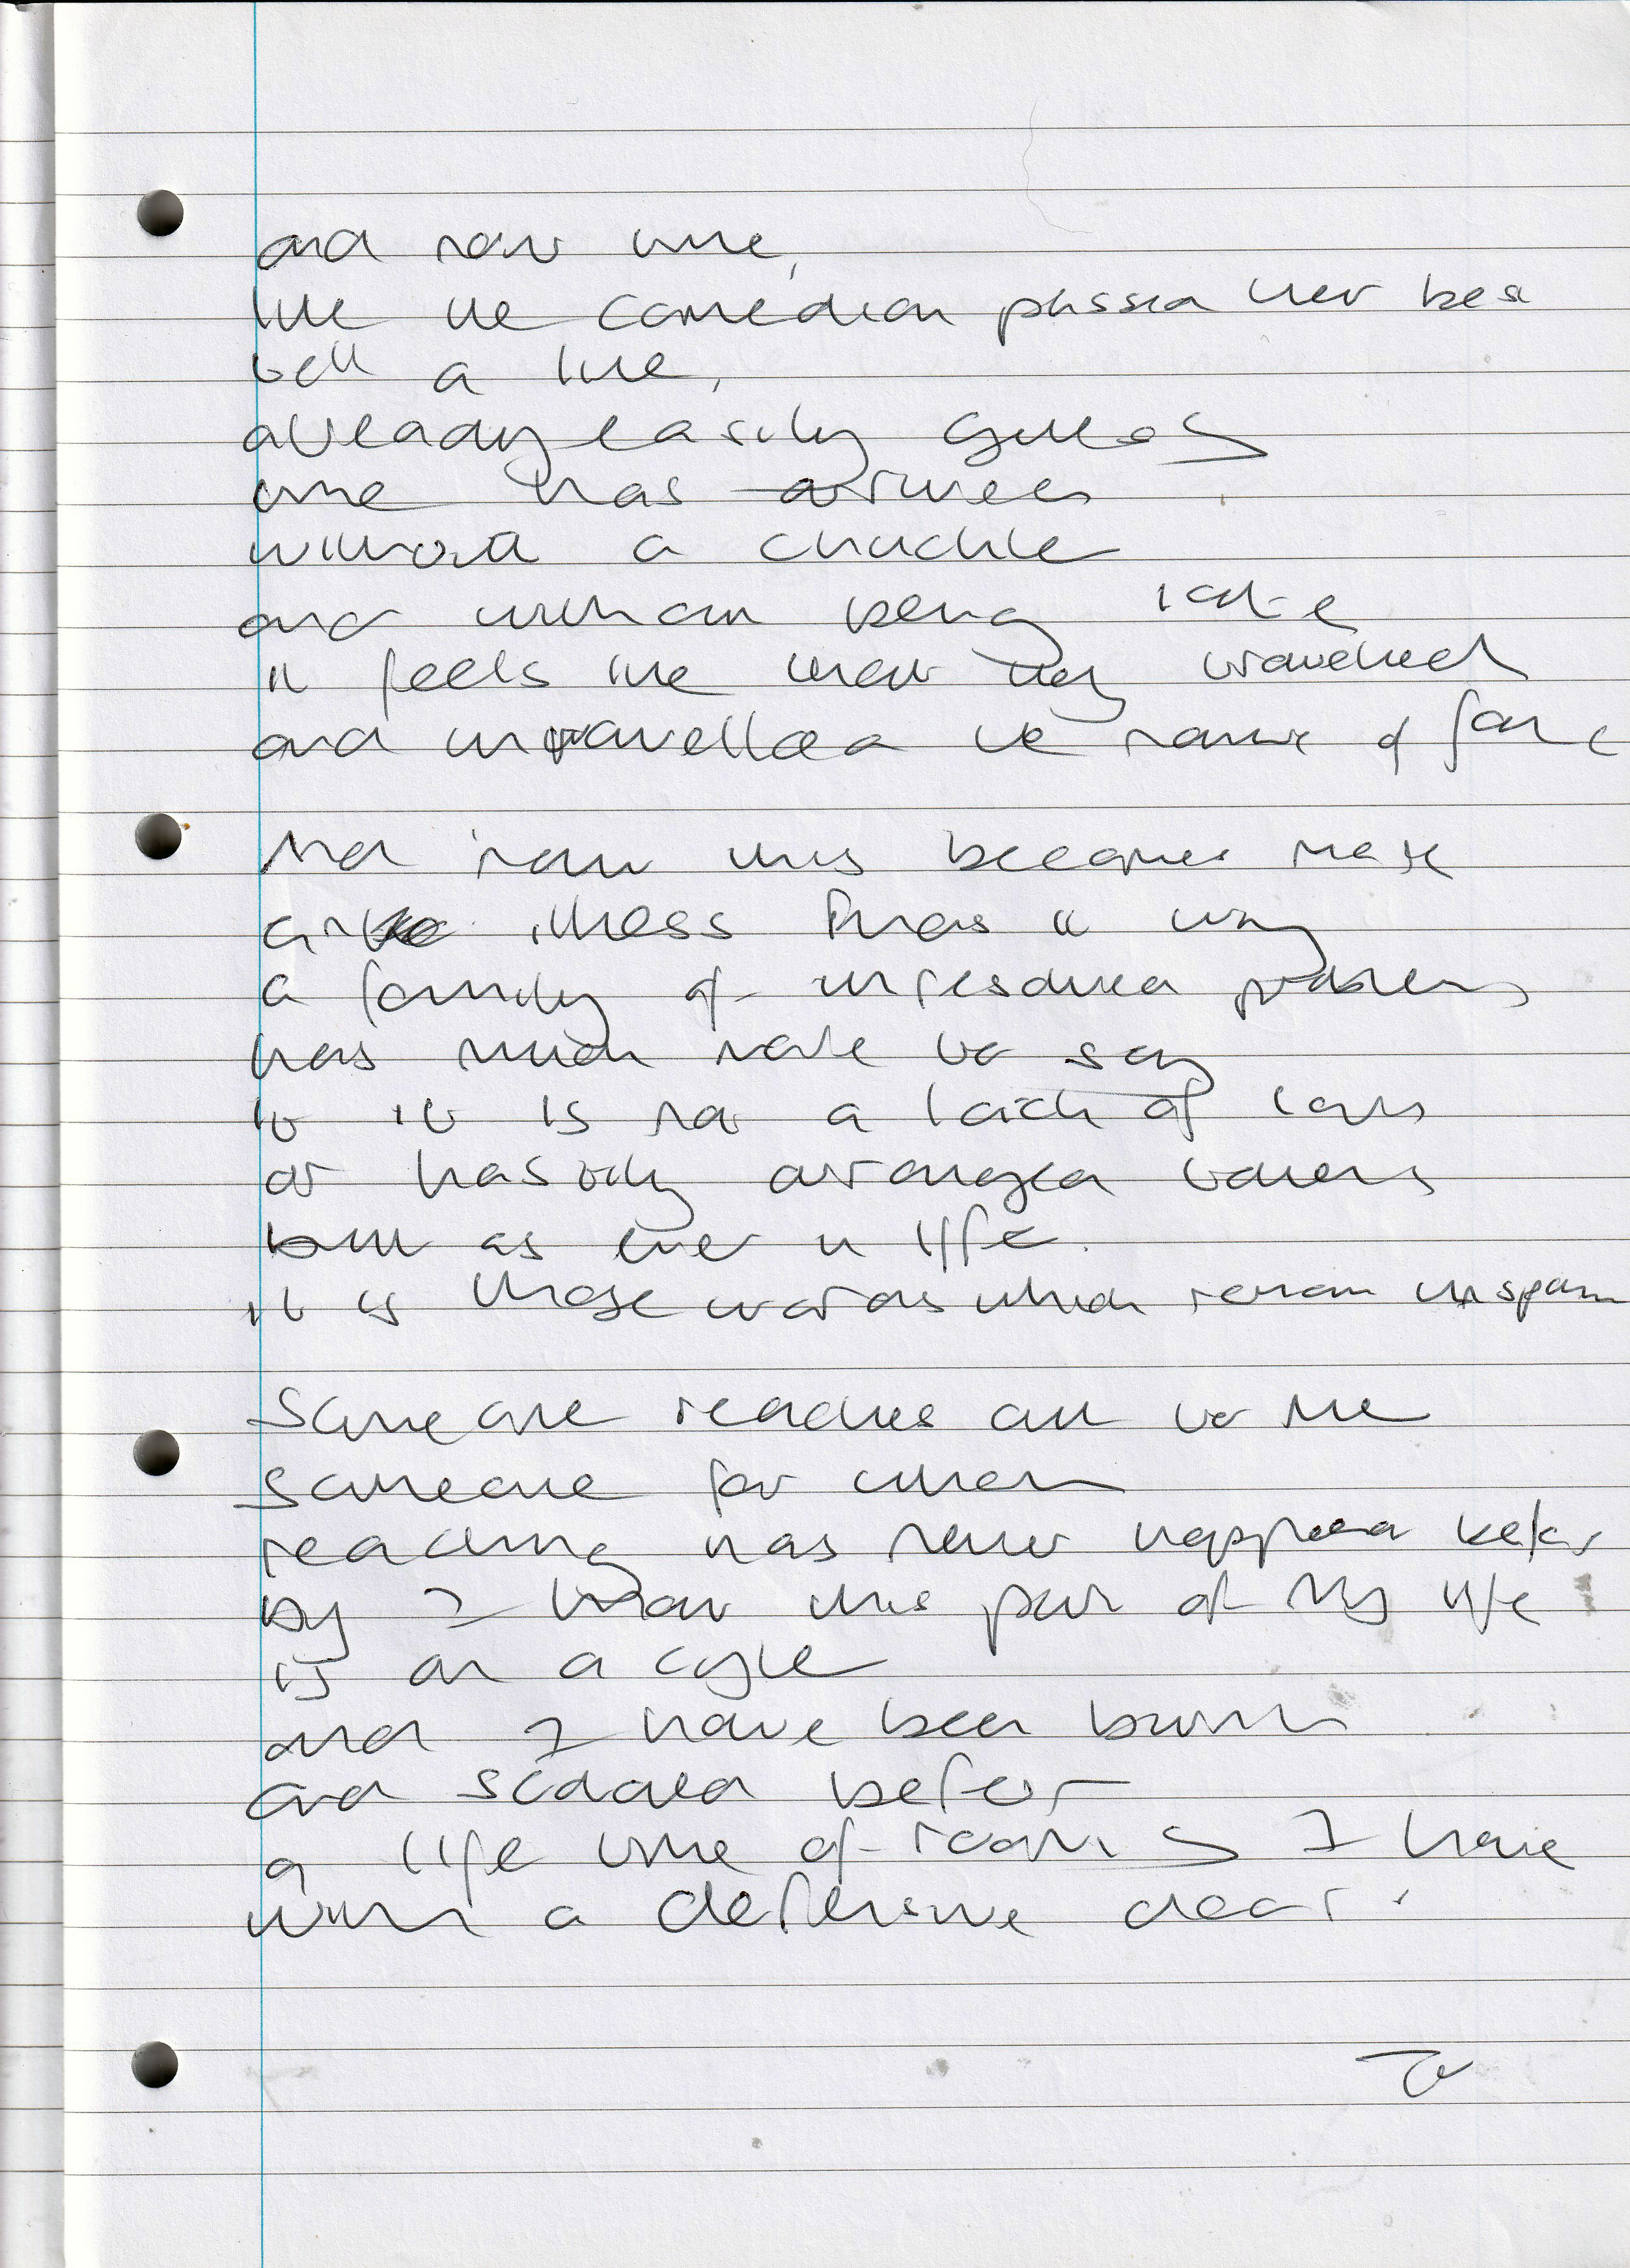 and now time,
like the comedian passed her best
tell a line,
already easily guessed
time has arrived
without a chuckle
and without being late
it feels like when they travelled
and unravelled the name of fame
And now this becomes more
illness finds it way
a family of unresolved problems
has much more to say
it is not a lack of love
or hastily arranged
but as ever in life.
it is those words which remain unspoken
Someone reaches out to me
someone for whom
reaching has never happened before
by I know this part of my life
is on a cycle
and I have been burnt
and scalded before
a life time of I have
with a defensive